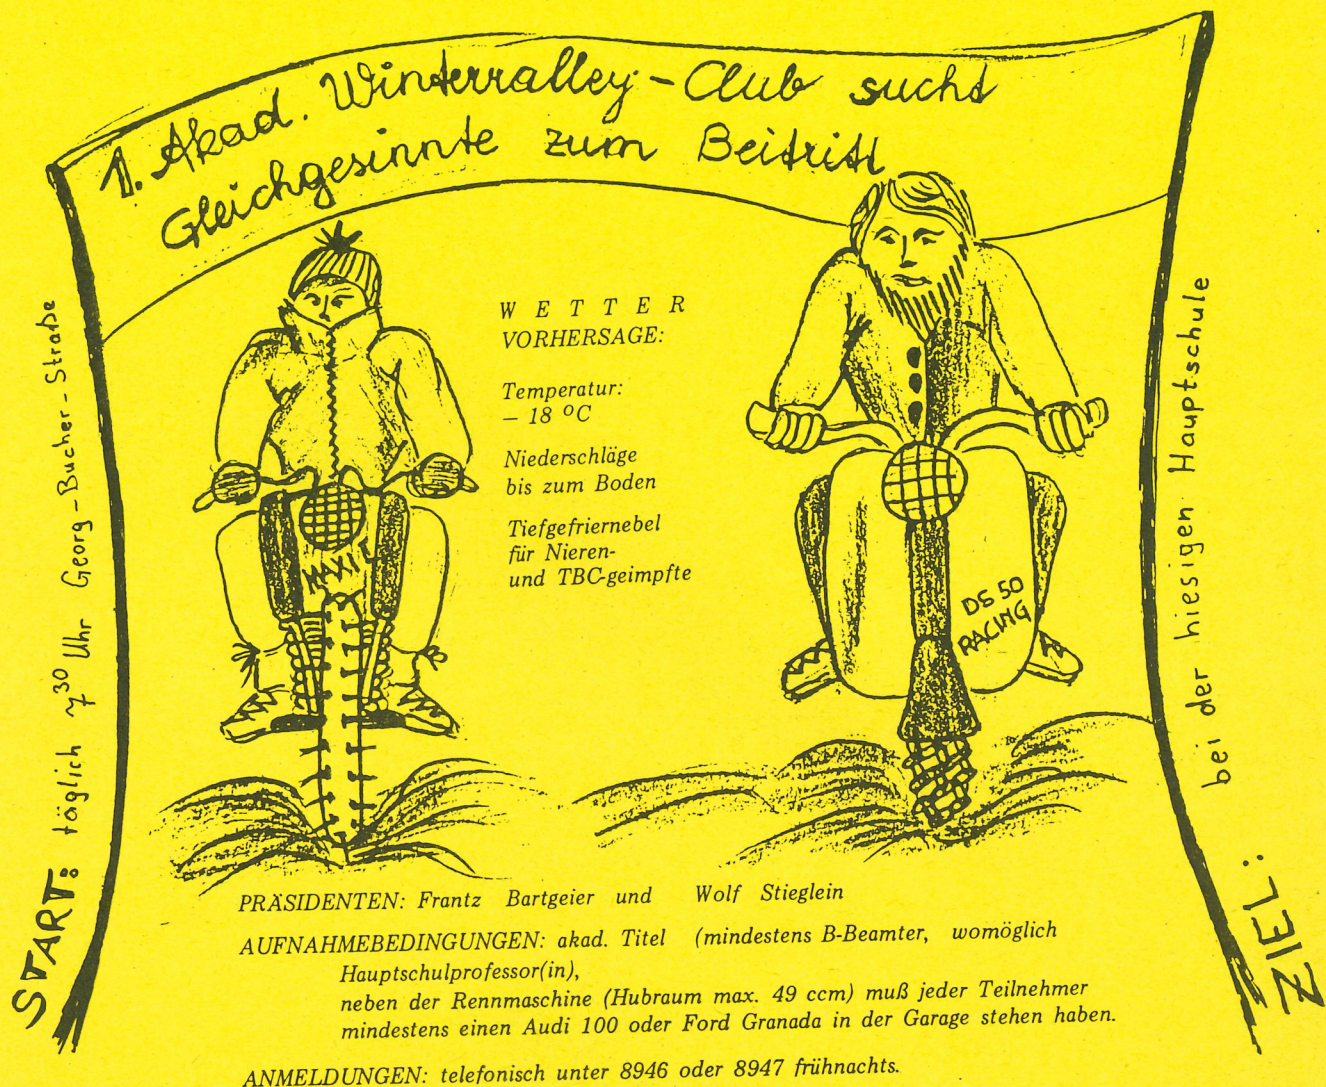 1. Akad. Winterralley-Club sucht
Gleichgesinnte zum Beitritt
START: täglich 7³⁰ Uhr Georg-Bucher-Straße
W E T T E R
VORHERSAGE:
Temperatur:
– 18 °C
Niederschläge
bis zum Boden
Tiefgefriernebel
für Nieren-
und TBC-geimpfte
MAXI
DS 50
RACING
ZIEL: bei der hiesigen Hauptschule
PRÄSIDENTEN: Frantz Bartgeier und Wolf Stieglein
AUFNAHMEBEDINGUNGEN: akad. Titel (mindestens B-Beamter, womöglich
Hauptschulprofessor(in),
neben der Rennmaschine (Hubraum max. 49 ccm) muß jeder Teilnehmer
mindestens einen Audi 100 oder Ford Granada in der Garage stehen haben.
ANMELDUNGEN: telefonisch unter 8946 oder 8947 frühnachts.